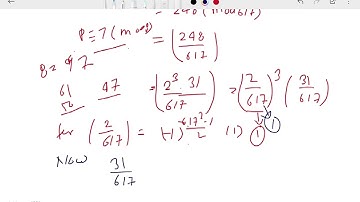 = 248 (mod 617)
P ≡ 7 (mod 8) = (248/617)
8 = 97
61 47 = (2^3 · 31 / 617) = (2/617)^3 (31/617)
56
for (2/617) = (-1)^(617^2 - 1 / 2) (1) 1 1
Now 31/617